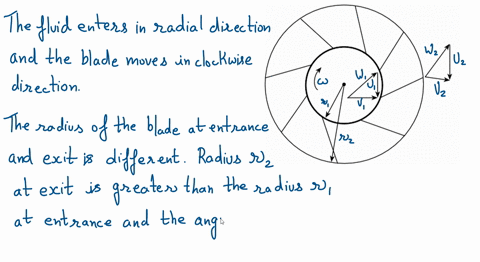 The fluid enters in radial direction
and the blade moves in clockwise
direction.
The radius of the blade at entrance
and exit is different. Radius r2
at exit is greater than the radius r1
at entrance and the ang
ω
r1
r2
W1
U1
V1
W2
U2
V2